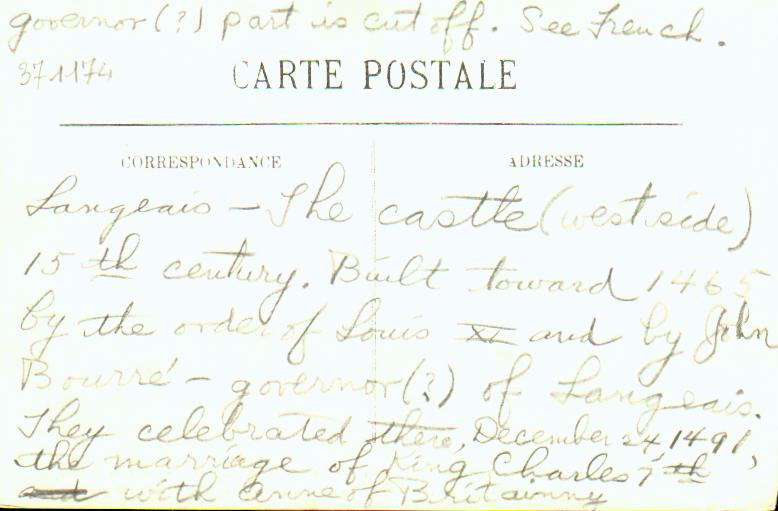 governor(?) part is cut off. See French.
371174
CARTE POSTALE
CORRESPONDANCE
ADRESSE
Langeais - The castle (west side)
15th century. Built toward 1465
by the order of Louis XI and by John
Bourré - governor(?) of Langeais.
They celebrated there, December 24, 1491,
the marriage of King Charles 7th
with Anne of Britainny